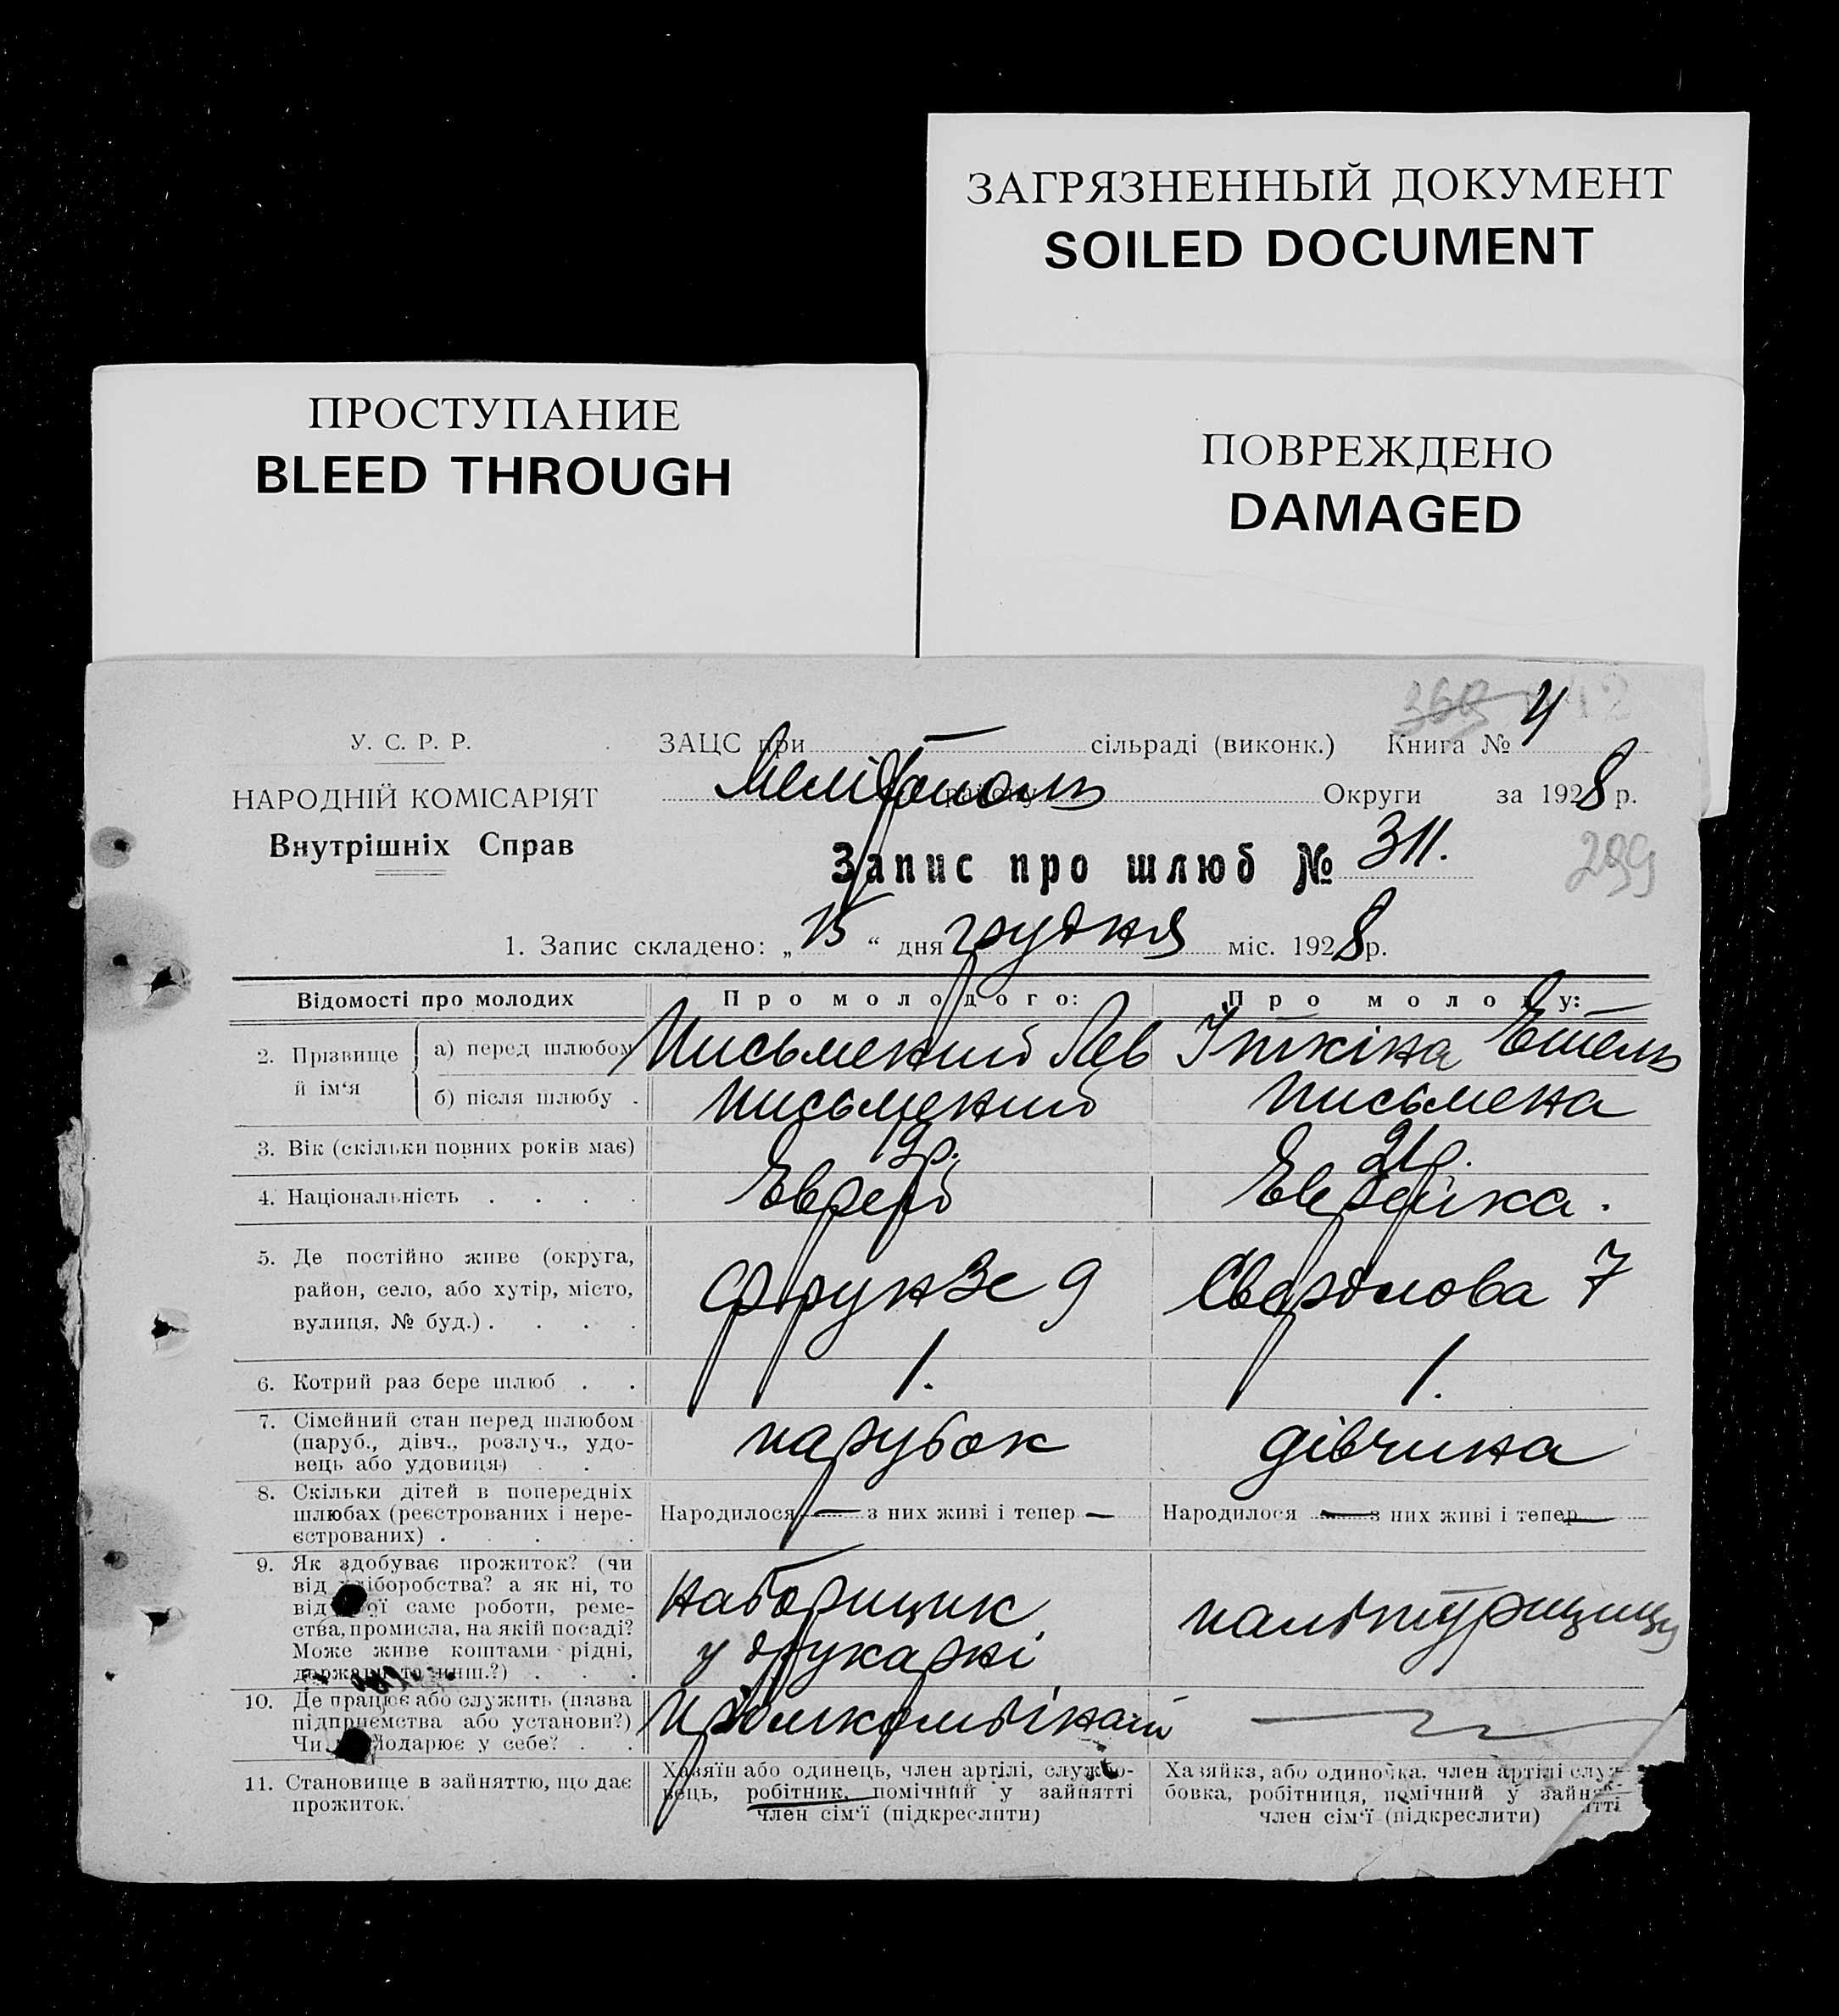 ЗАГРЯЗНЕННЫЙ ДОКУМЕНТ
SOILED DOCUMENT
ПРОСТУПАНИЕ
BLEED THROUGH
ПОВРЕЖДЕНО
DAMAGED
369 4
У. С. Р. Р. ЗАЦС при — сільраді (виконк.) Книга №
НАРОДНІЙ КОМІСАРІЯТ Мелітополь району Округи за 1928 р.
Внутрішніх Справ
Запис про шлюб № 311. 299
1. Запис складено: „15“ дня грудня міс. 1928 р.
Відомості про молодих Про молодого: Про молоду:
2. Прізвище й ім‘я а) перед шлюбом Письменний Лев Іткіна Етель
б) після шлюбу . Письменний Письмена
3. Вік (скільки повних років має) 21р.
4. Національність . . . . Еврей Еврейка.
5. Де постійно живе (округа,
район, село, або хутір, місто,
вулиця, № буд.) . . . . Фрунзе 9 Свердлова 7
6. Котрий раз бере шлюб . . 1. 1.
7. Сімейний стан перед шлюбом
(паруб., дівч., розлуч., удо-
вець або удовиця) . . парубок дівчина
8. Скільки дітей в попередніх
шлюбах (реєстрованих і нере-
єстрованих) . . . . Народилося — з них живі і тепер — Народилося — з них живі і тепер —
9. Як здобуває прожиток? (чи
від хліборобства? а як ні, то
від якої саме роботи, реме-
ства, промисла, на якій посаді?
Може живе коштами рідні,
держави та инш.?) . . . наборщик
у друкарні
10. Де працює або служить (назва
підприємства або установи?)
Чи господарює у себе? . . Промкомбінат —
11. Становище в зайняттю, що дає
прожиток.
Хазяїн або одинець, член артілі, службо-
вець, робітник, помічний у зайнятті
член сім‘ї (підкреслити)
Хазяйка, або одиночка, член артілі служ-
бовка, робітниця, помічний у зайнятті
член сім‘ї (підкреслити)